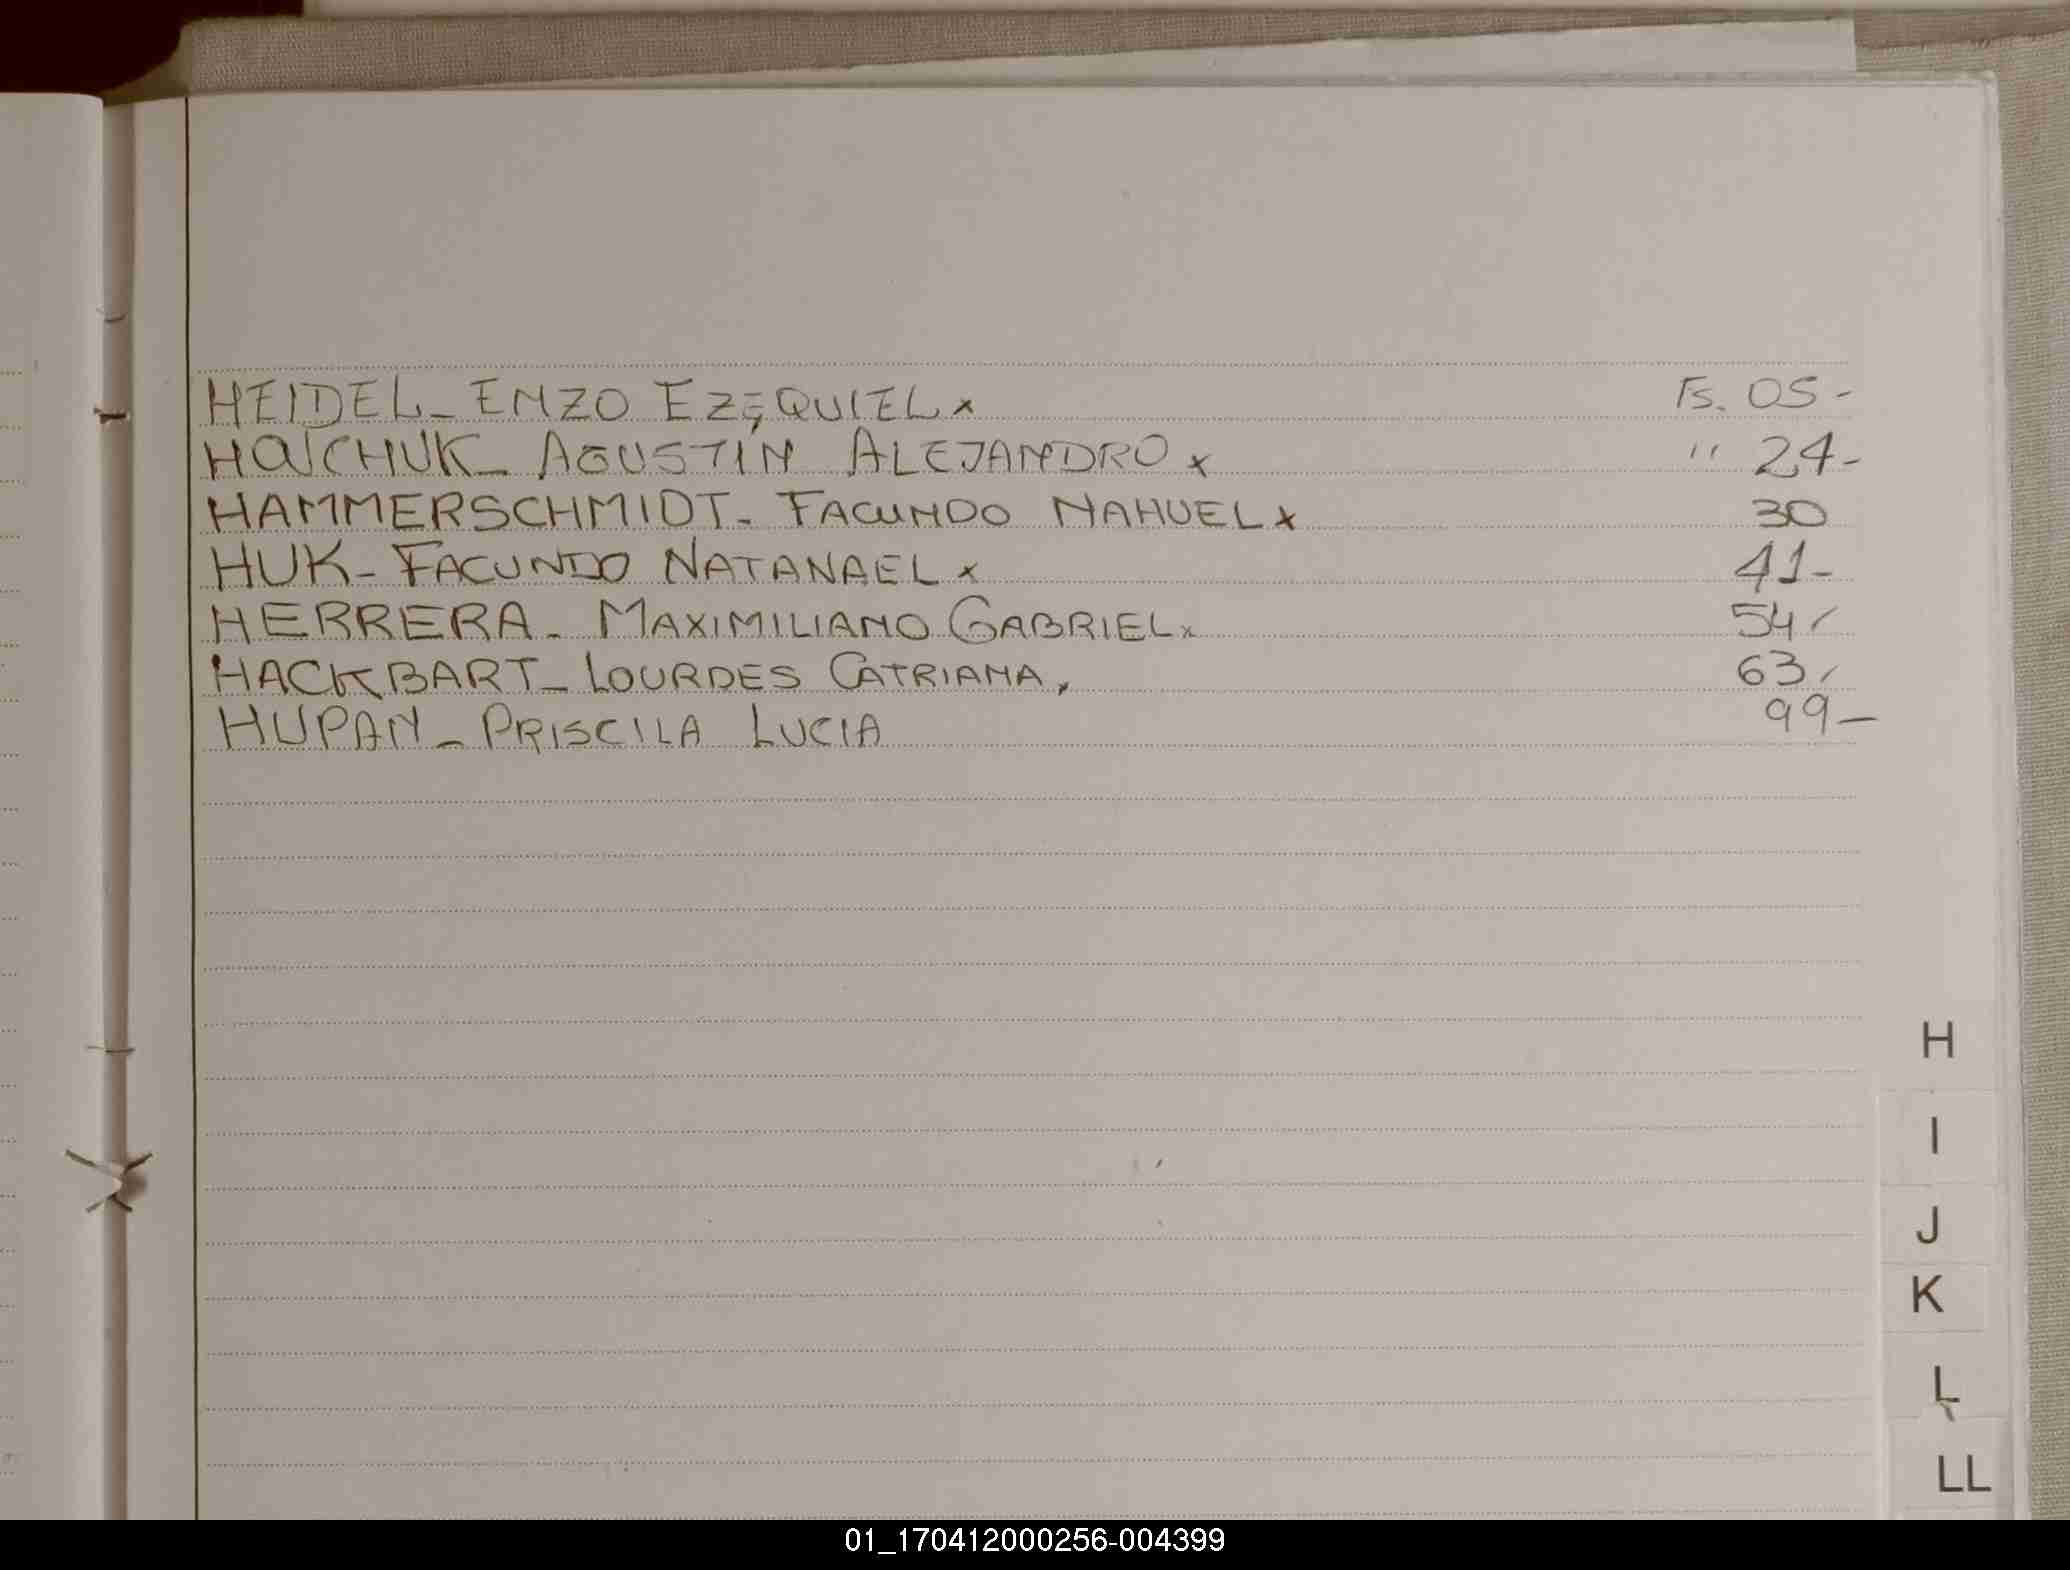 HEIDEL_ ENZO EZEQUIEL x Fs. 05 -
HAICHUK_ AGUSTÍN ALEJANDRO x " 24 -
HAMMERSCHMIDT_ FACUNDO NAHUEL x 30
HUK_ FACUNDO NATANAEL x 41 -
HERRERA_ MAXIMILIANO GABRIEL x 54 /
HACKBART_ LOURDES CATRIANA, 63 /
HUPAN_ PRISCILA LUCIA 99 _
H
I
J
K
L
LL
01_170412000256-004399